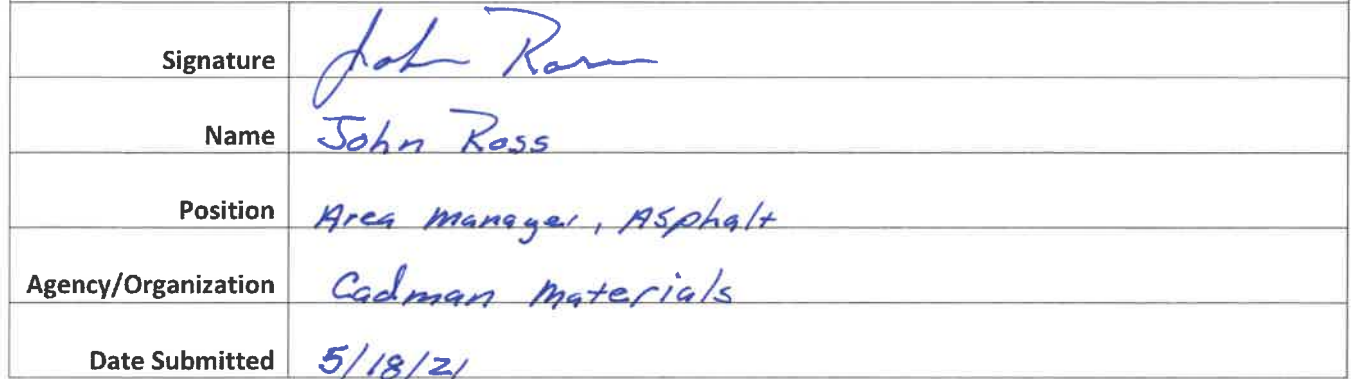 Signature John Ross
Name John Ross
Position Area Manager, Asphalt
Agency/Organization Cadman Materials
Date Submitted 5/18/21